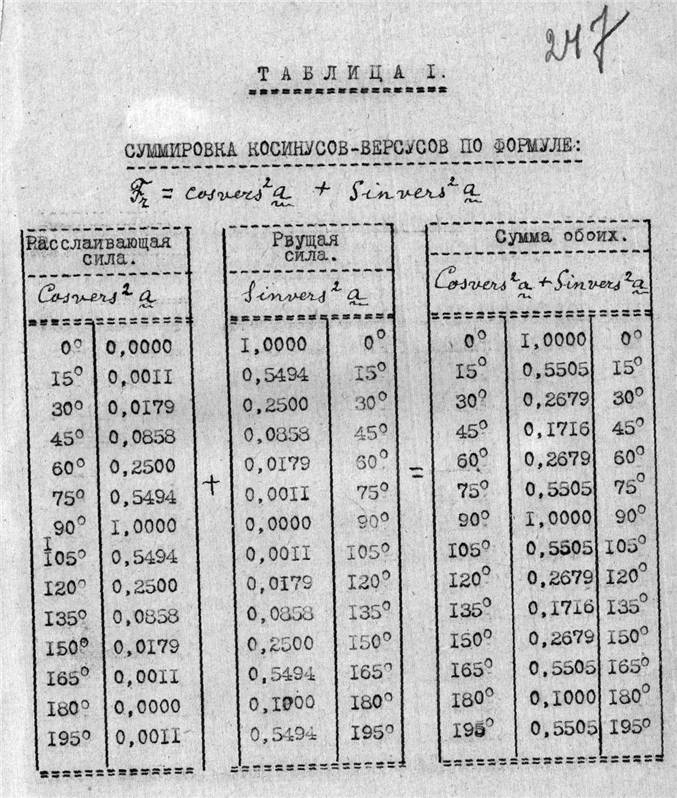 247
ТАБЛИЦА I.
СУММИРОВКА КОСИНУСОВ-ВЕРСУСОВ ПО ФОРМУЛЕ:
Fr = cosvers² a + Sinvers² a
Расслаивающая сила. Рвущая сила. Сумма обоих.
Cosvers² a Sinvers² a Cosvers² a + Sinvers² a
0° 0,0000 I,0000 0° 0° I,0000 0°
I5° 0,00II 0,5494 I5° I5° 0,5505 I5°
30° 0,0I79 0,2500 30° 30° 0,2679 30°
45° 0,0858 0,0858 45° 45° 0,I7I6 45°
60° 0,2500 0,0I79 60° 60° 0,2679 60°
75° 0,5494 + 0,00II 75° = 75° 0,5505 75°
90° I,0000 0,0000 90° 90° I,0000 90°
I
I05° 0,5494 0,00II I05° I05° 0,5505 I05°
I20° 0,2500 0,0I79 I20° I20° 0,2679 I20°
I35° 0,0858 0,0858 I35° I35° 0,I7I6 I35°
I50° 0,0I79 0,2500 I50° I50° 0,2679 I50°
I65° 0,00II 0,5494 I65° I65° 0,5505 I65°
I80° 0,0000 0,I000 I80° I80° 0,I000 I80°
I95° 0,00II 0,5494 I95° I95° 0,5505 I95°